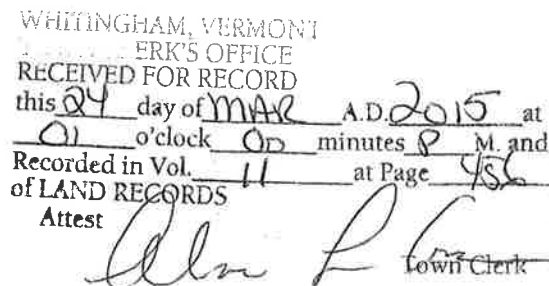 WHITINGHAM, VERMONT
ERK'S OFFICE
RECEIVED FOR RECORD
this 24 day of MAR A.D. 2015 at
01 o'clock 00 minutes P M. and
Recorded in Vol. 11 at Page 456
of LAND RECORDS
Attest
Town Clerk